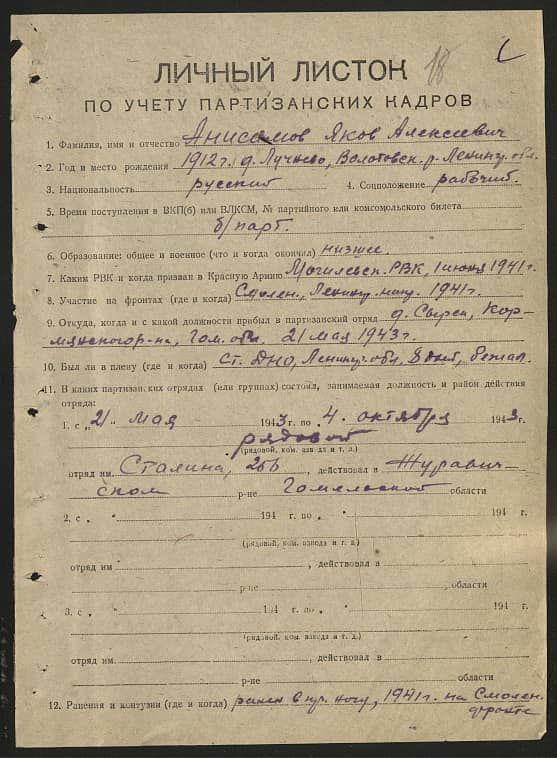 18
ЛИЧНЫЙ ЛИСТОК
ПО УЧЕТУ ПАРТИЗАНСКИХ КАДРОВ
1. Фамилия, имя и отчество Анисимов Яков Алексеевич
2. Год и место рождения 1912 г. д. Лучнево, Волотовск. р. Ленингр. обл.
3. Национальность русский 4. Соцположение рабочий.
5. Время поступления в ВКП(б) или ВЛКСМ, № партийного или комсомольского билета
б/парт.
6. Образование: общее и военное (что и когда окончил) низшее.
7. Каким РВК и когда призван в Красную Армию Могилевск. РВК, 1 июня 1941 г.
8. Участие на фронтах (где и когда) Смолен., Ленингр. 1941 г.
9. Откуда, когда и с какой должности прибыл в партизанский отряд д. Сырск, Кор-
мянского р-на, Гом. обл., 21 мая 1943 г.
10. Был ли в плену (где и когда) ст. ДНО, Ленингр. обл., 8 дней, бежал.
11. В каких партизанских отрядах (или группах) состоял, занимаемая должность и район действия
отряда:
1. с „21" мая 1943 г. по „4. октября 1943 г.
рядовой
(рядовой, ком. взвода и т. д.)
отряд им. Сталина, 26б, действовал в Журавич-
ском р-не Гомельской области
2, с „ " 194 г. по „ " 194 г.
(рядовой, ком. взвода и т. д.)
отряд им , действовал в
р-не , области
3. с „ " 194 г. по „ " 194 г.
(рядовой, ком. взвода и т. д.)
отряд им. , действовал в
р-не области
12. Ранения и контузии (где и когда) ранен в пр. ногу, 1941 г. на Смолен.
фронте